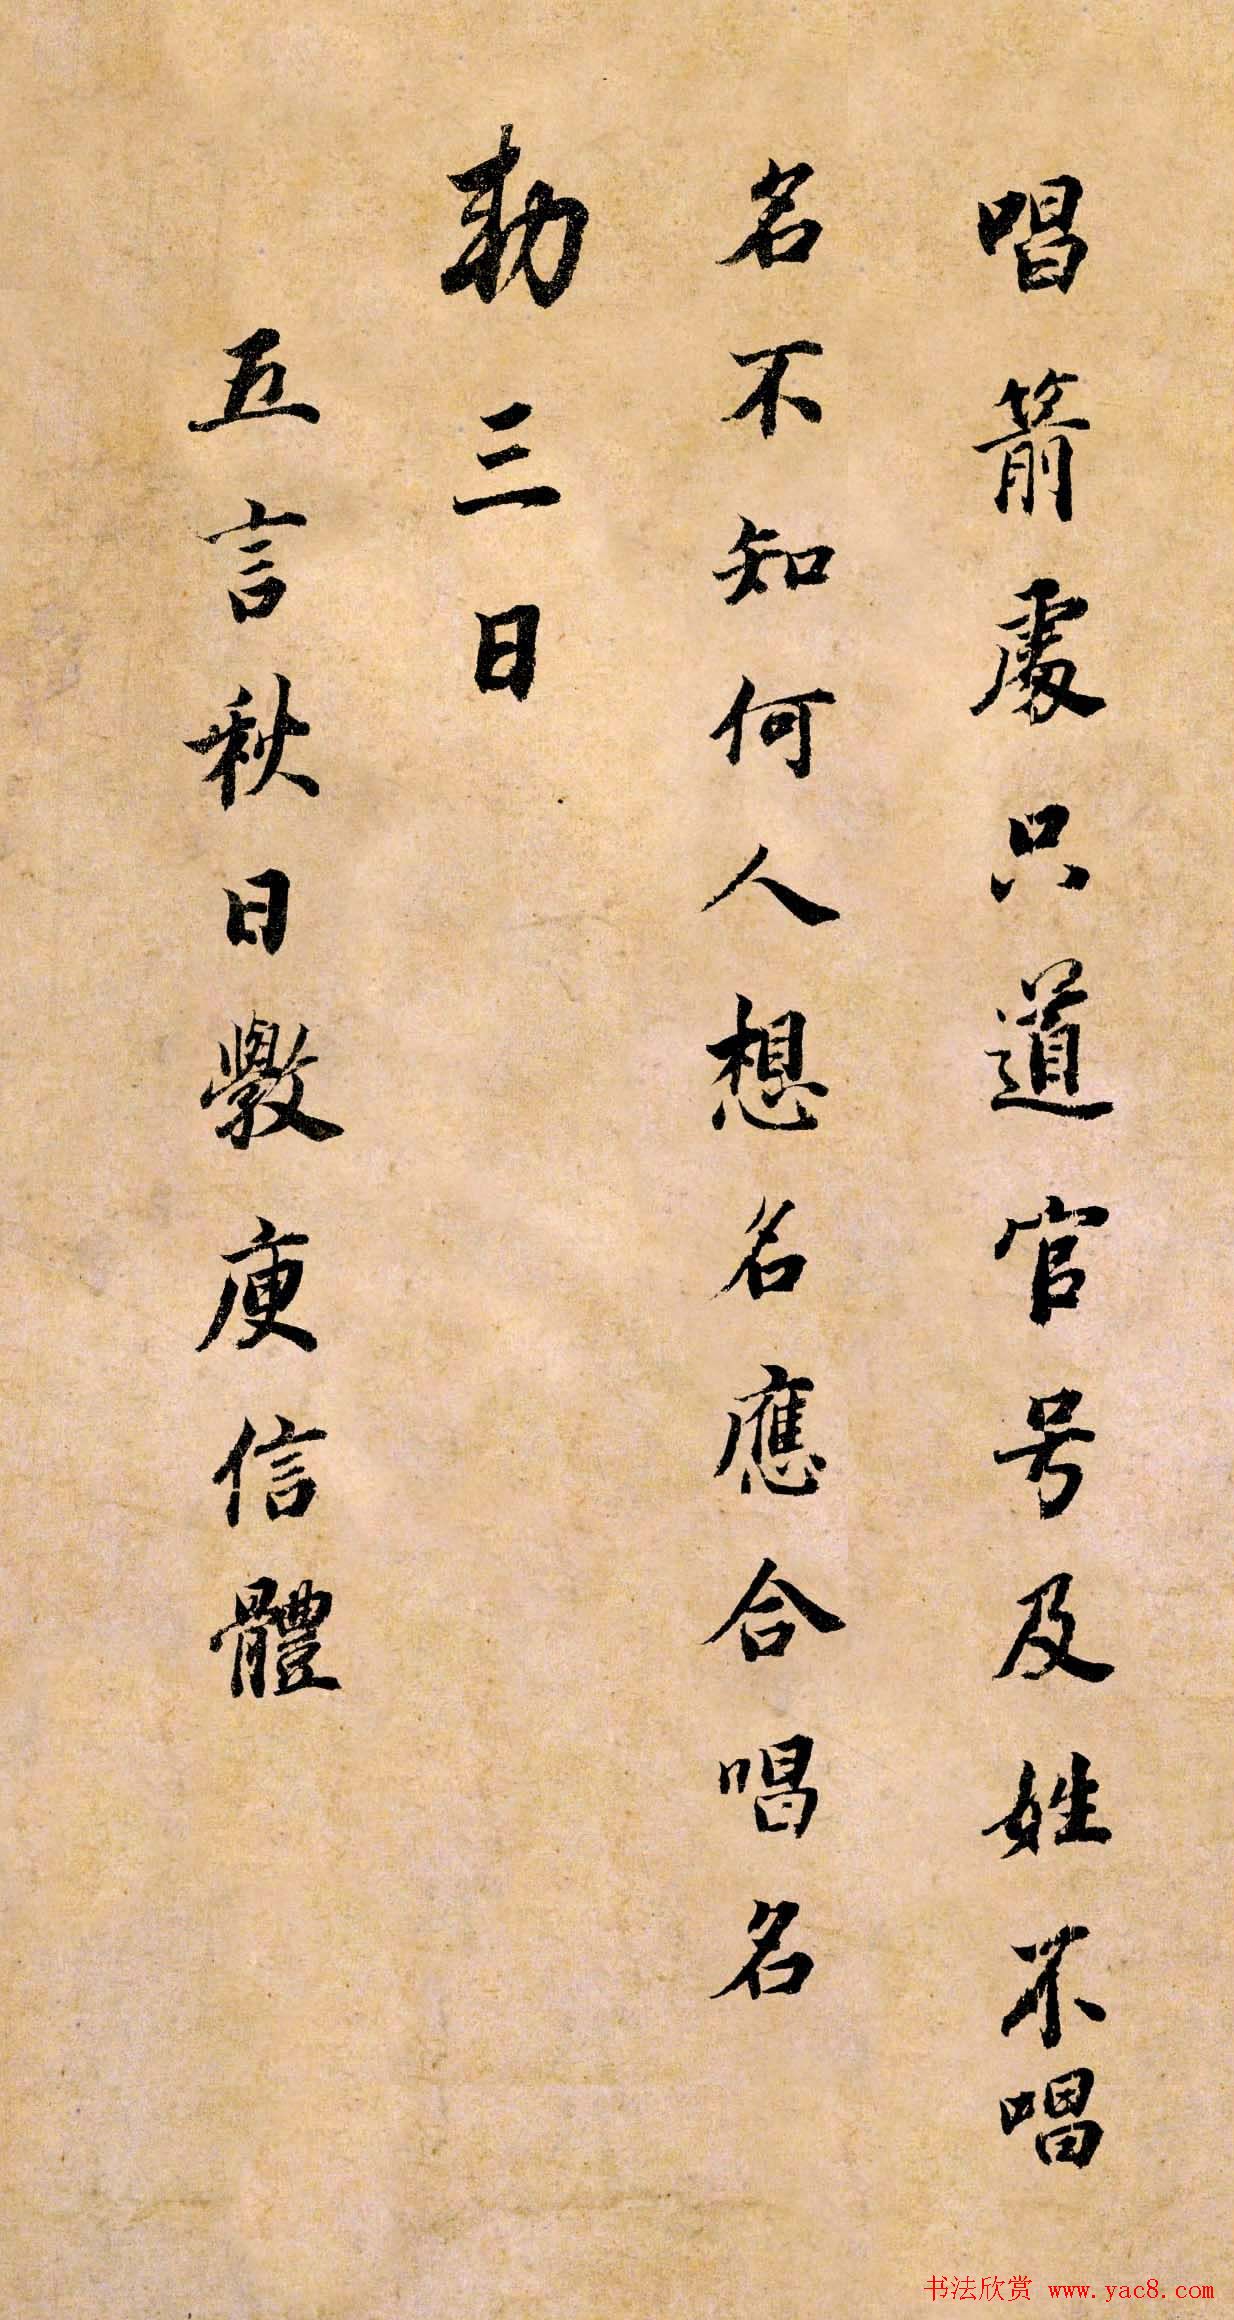 唱箭處只道官号及姓不唱
名不知何人想名應合唱名
勅三日
五言秋日斆庾信體
书法欣赏 www.yac8.com